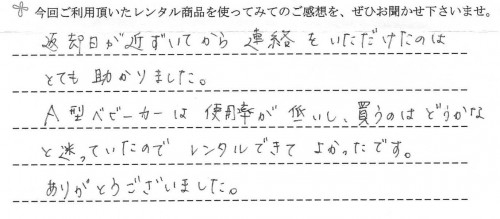 今回ご利用頂いたレンタル商品を使ってみてのご感想を、ぜひお聞かせ下さいませ。
返却日が近ずいてから連絡をいただけたのは
とても助かりました。
A型ベビーカーは使用率が低いし、買うのはどうかな
と迷っていたのでレンタルできてよかったです。
ありがとうございました。